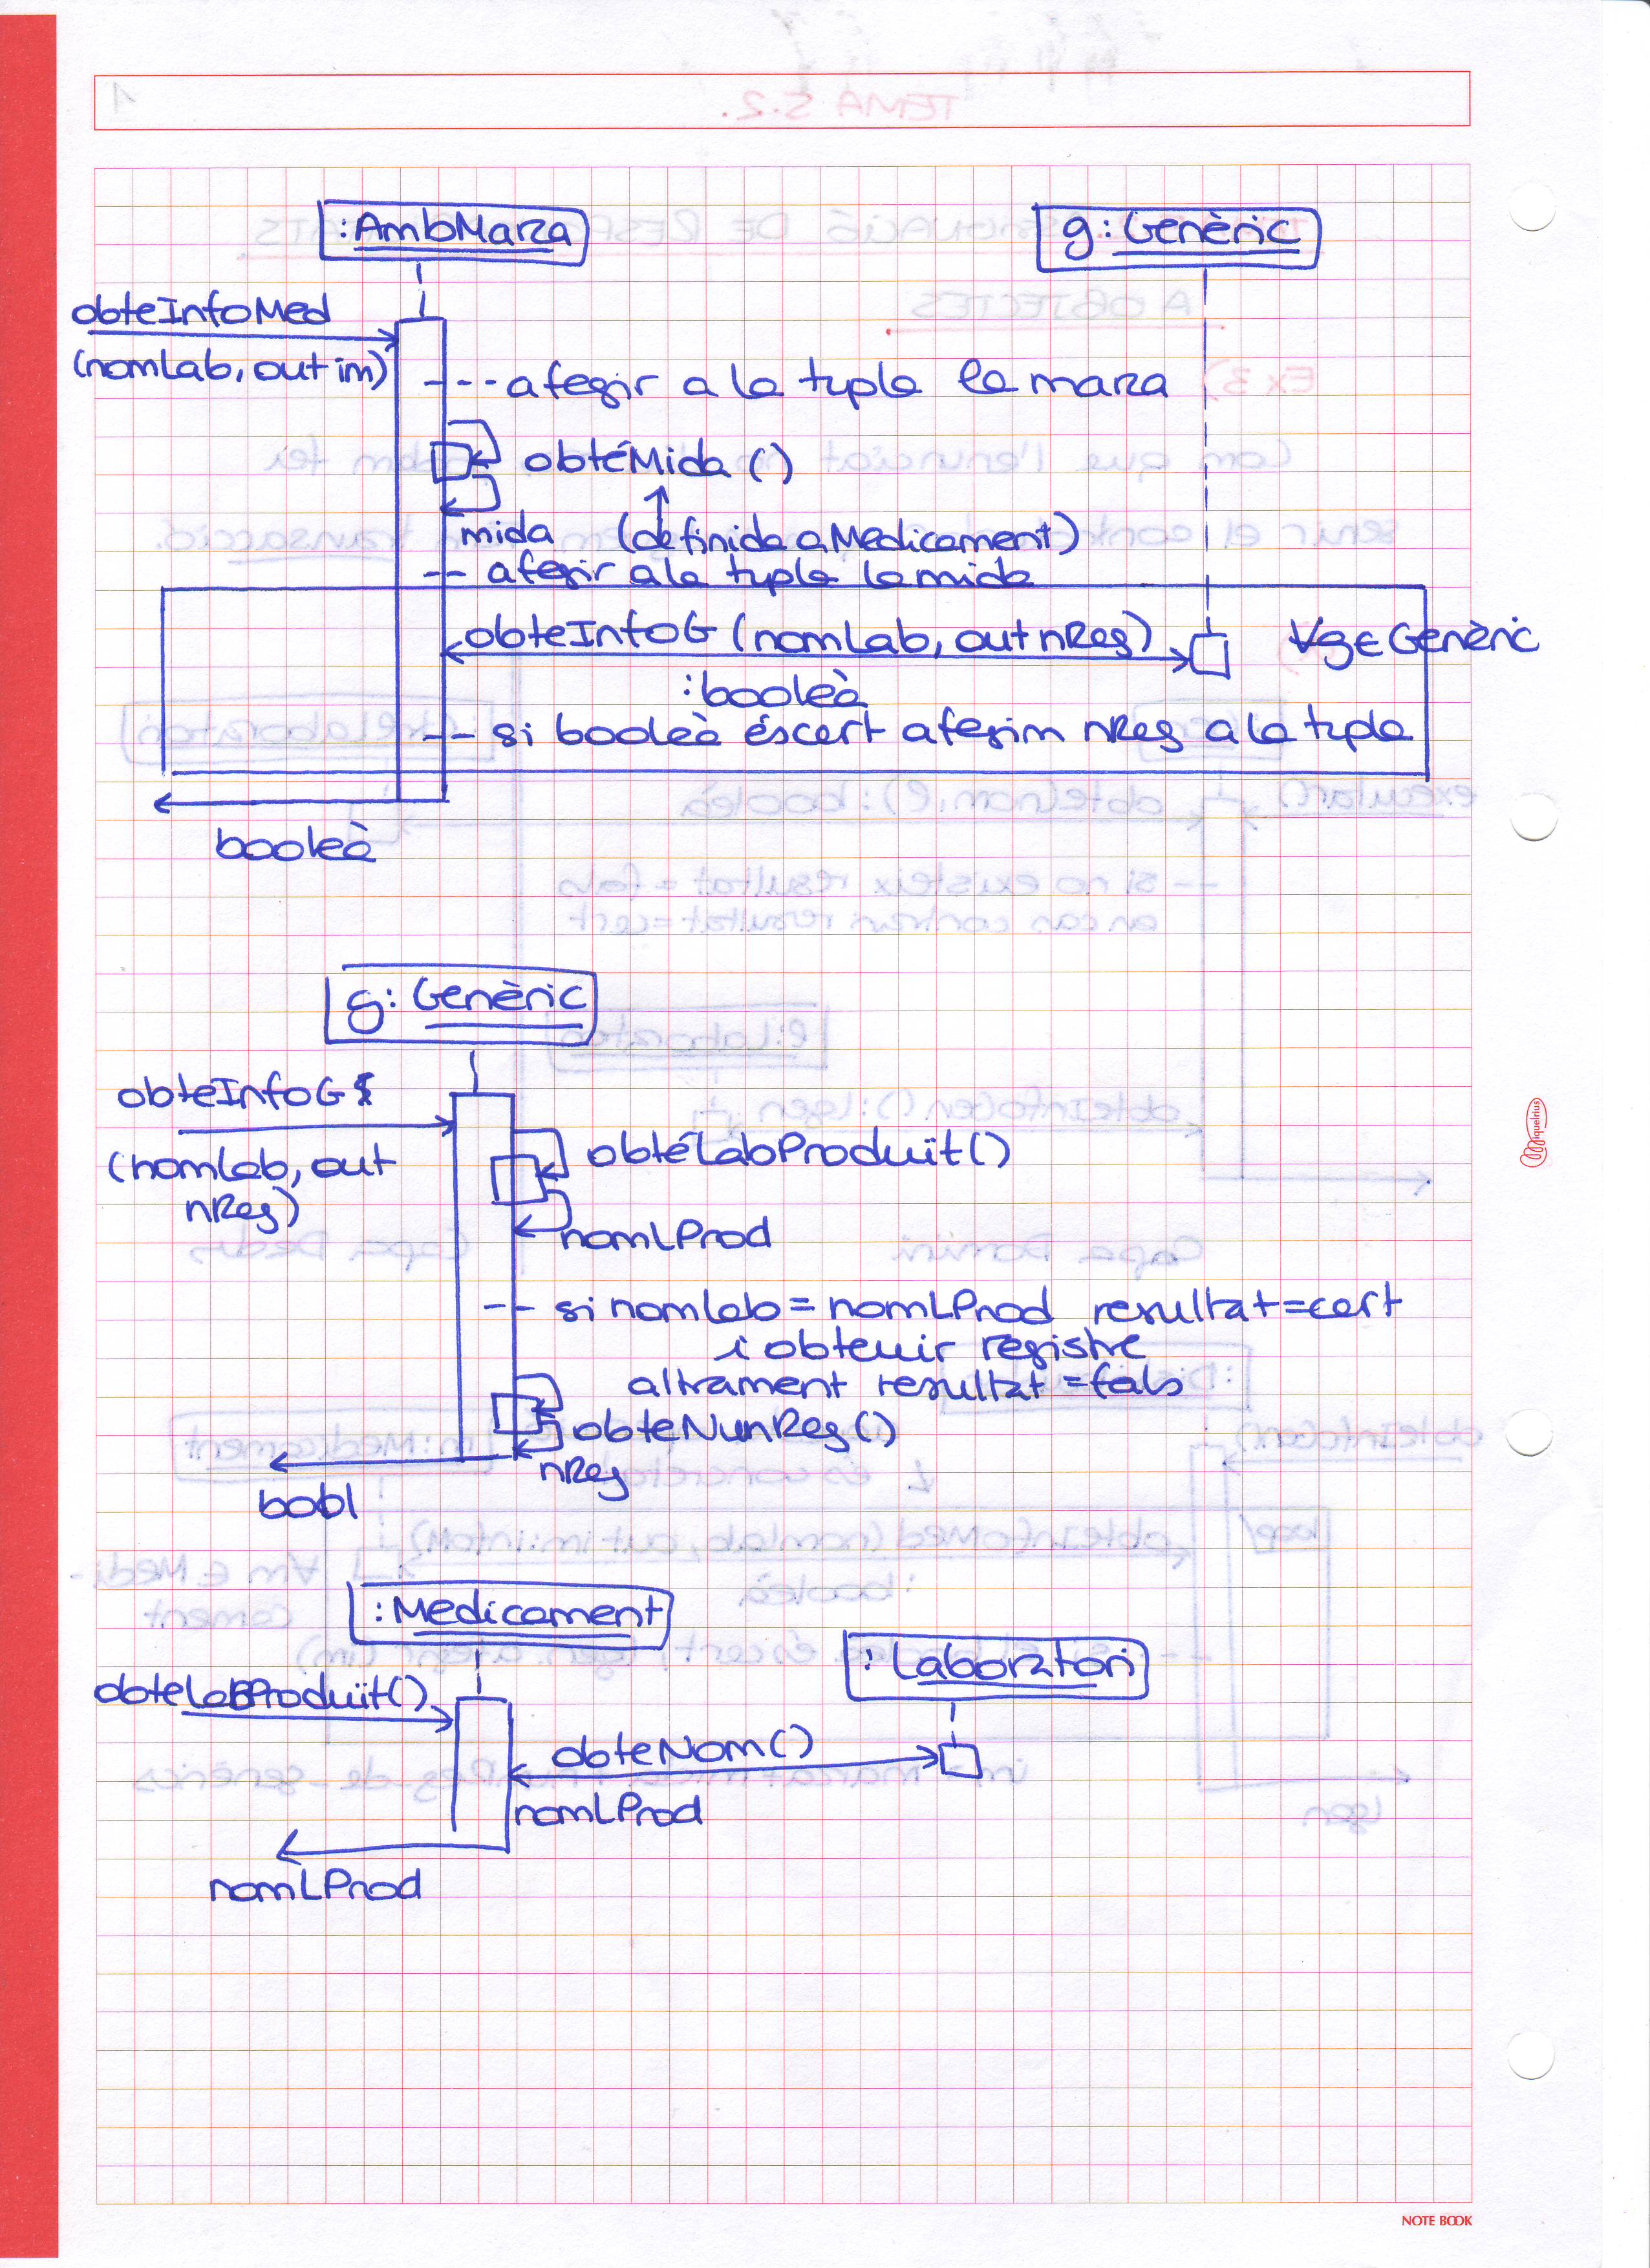 :AmbMarca
g: Genèric
obteInfoMed
(nomLab, out im)
--- afegir a la tupla la marca
obtéMida ()
mida (definida a Medicament)
-- afegir a la tupla la mida
obteInfoG (nomLab, out nReg)
∀g ∈ Genèric
:booleà
-- si booleà és cert afegim nReg a la tupla
booleà
g: Genèric
obteInfoG
(nomLab, out
nReg)
obtéLabProduït()
nomLProd
-- si nomLab = nomLProd resultat=cert
i obtenir registre
altrament resultat = fals
obteNumReg()
nReg
bool
:Medicament
:Laboratori
obteLabProduït()
obteNom()
nomLProd
nomLProd
miquelrius
NOTE BOOK